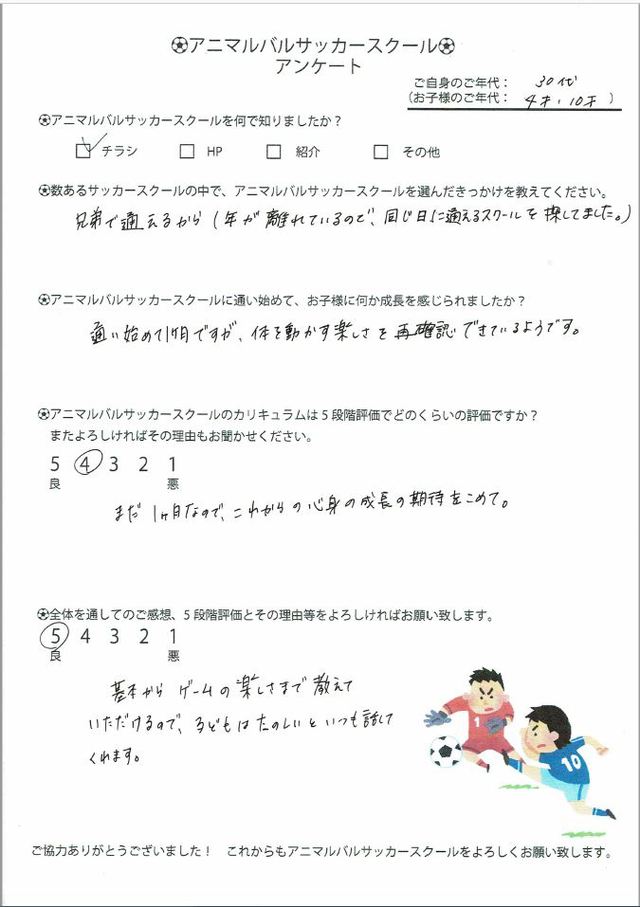 ⚽アニマルバルサッカースクール⚽
アンケート
ご自身のご年代： 30代
（お子様のご年代： 4才・10才 ）
⚽アニマルバルサッカースクールを何で知りましたか？
☑ チラシ □ HP □ 紹介 □ その他
⚽数あるサッカースクールの中で、アニマルバルサッカースクールを選んだきっかけを教えてください。
兄弟で通えるから（年が離れているので、同じ日に通えるスクールを探してました。）
⚽アニマルバルサッカースクールに通い始めて、お子様に何か成長を感じられましたか？
通い始めて1ヶ月ですが、体を動かす楽しさを再確認できているようです。
⚽アニマルバルサッカースクールのカリキュラムは５段階評価でどのくらいの評価ですか？
またよろしければその理由もお聞かせください。
5 4 3 2 1
良 悪
まだ1ヶ月なので、これからの心身の成長の期待をこめて。
⚽全体を通してのご感想、５段階評価とその理由等をよろしければお願い致します。
5 4 3 2 1
良 悪
基本からゲームの楽しさまで教えて
いただけるので、子どもはたのしいといつも話して
くれます。
1
10
ご協力ありがとうございました！ これからもアニマルバルサッカースクールをよろしくお願い致します。